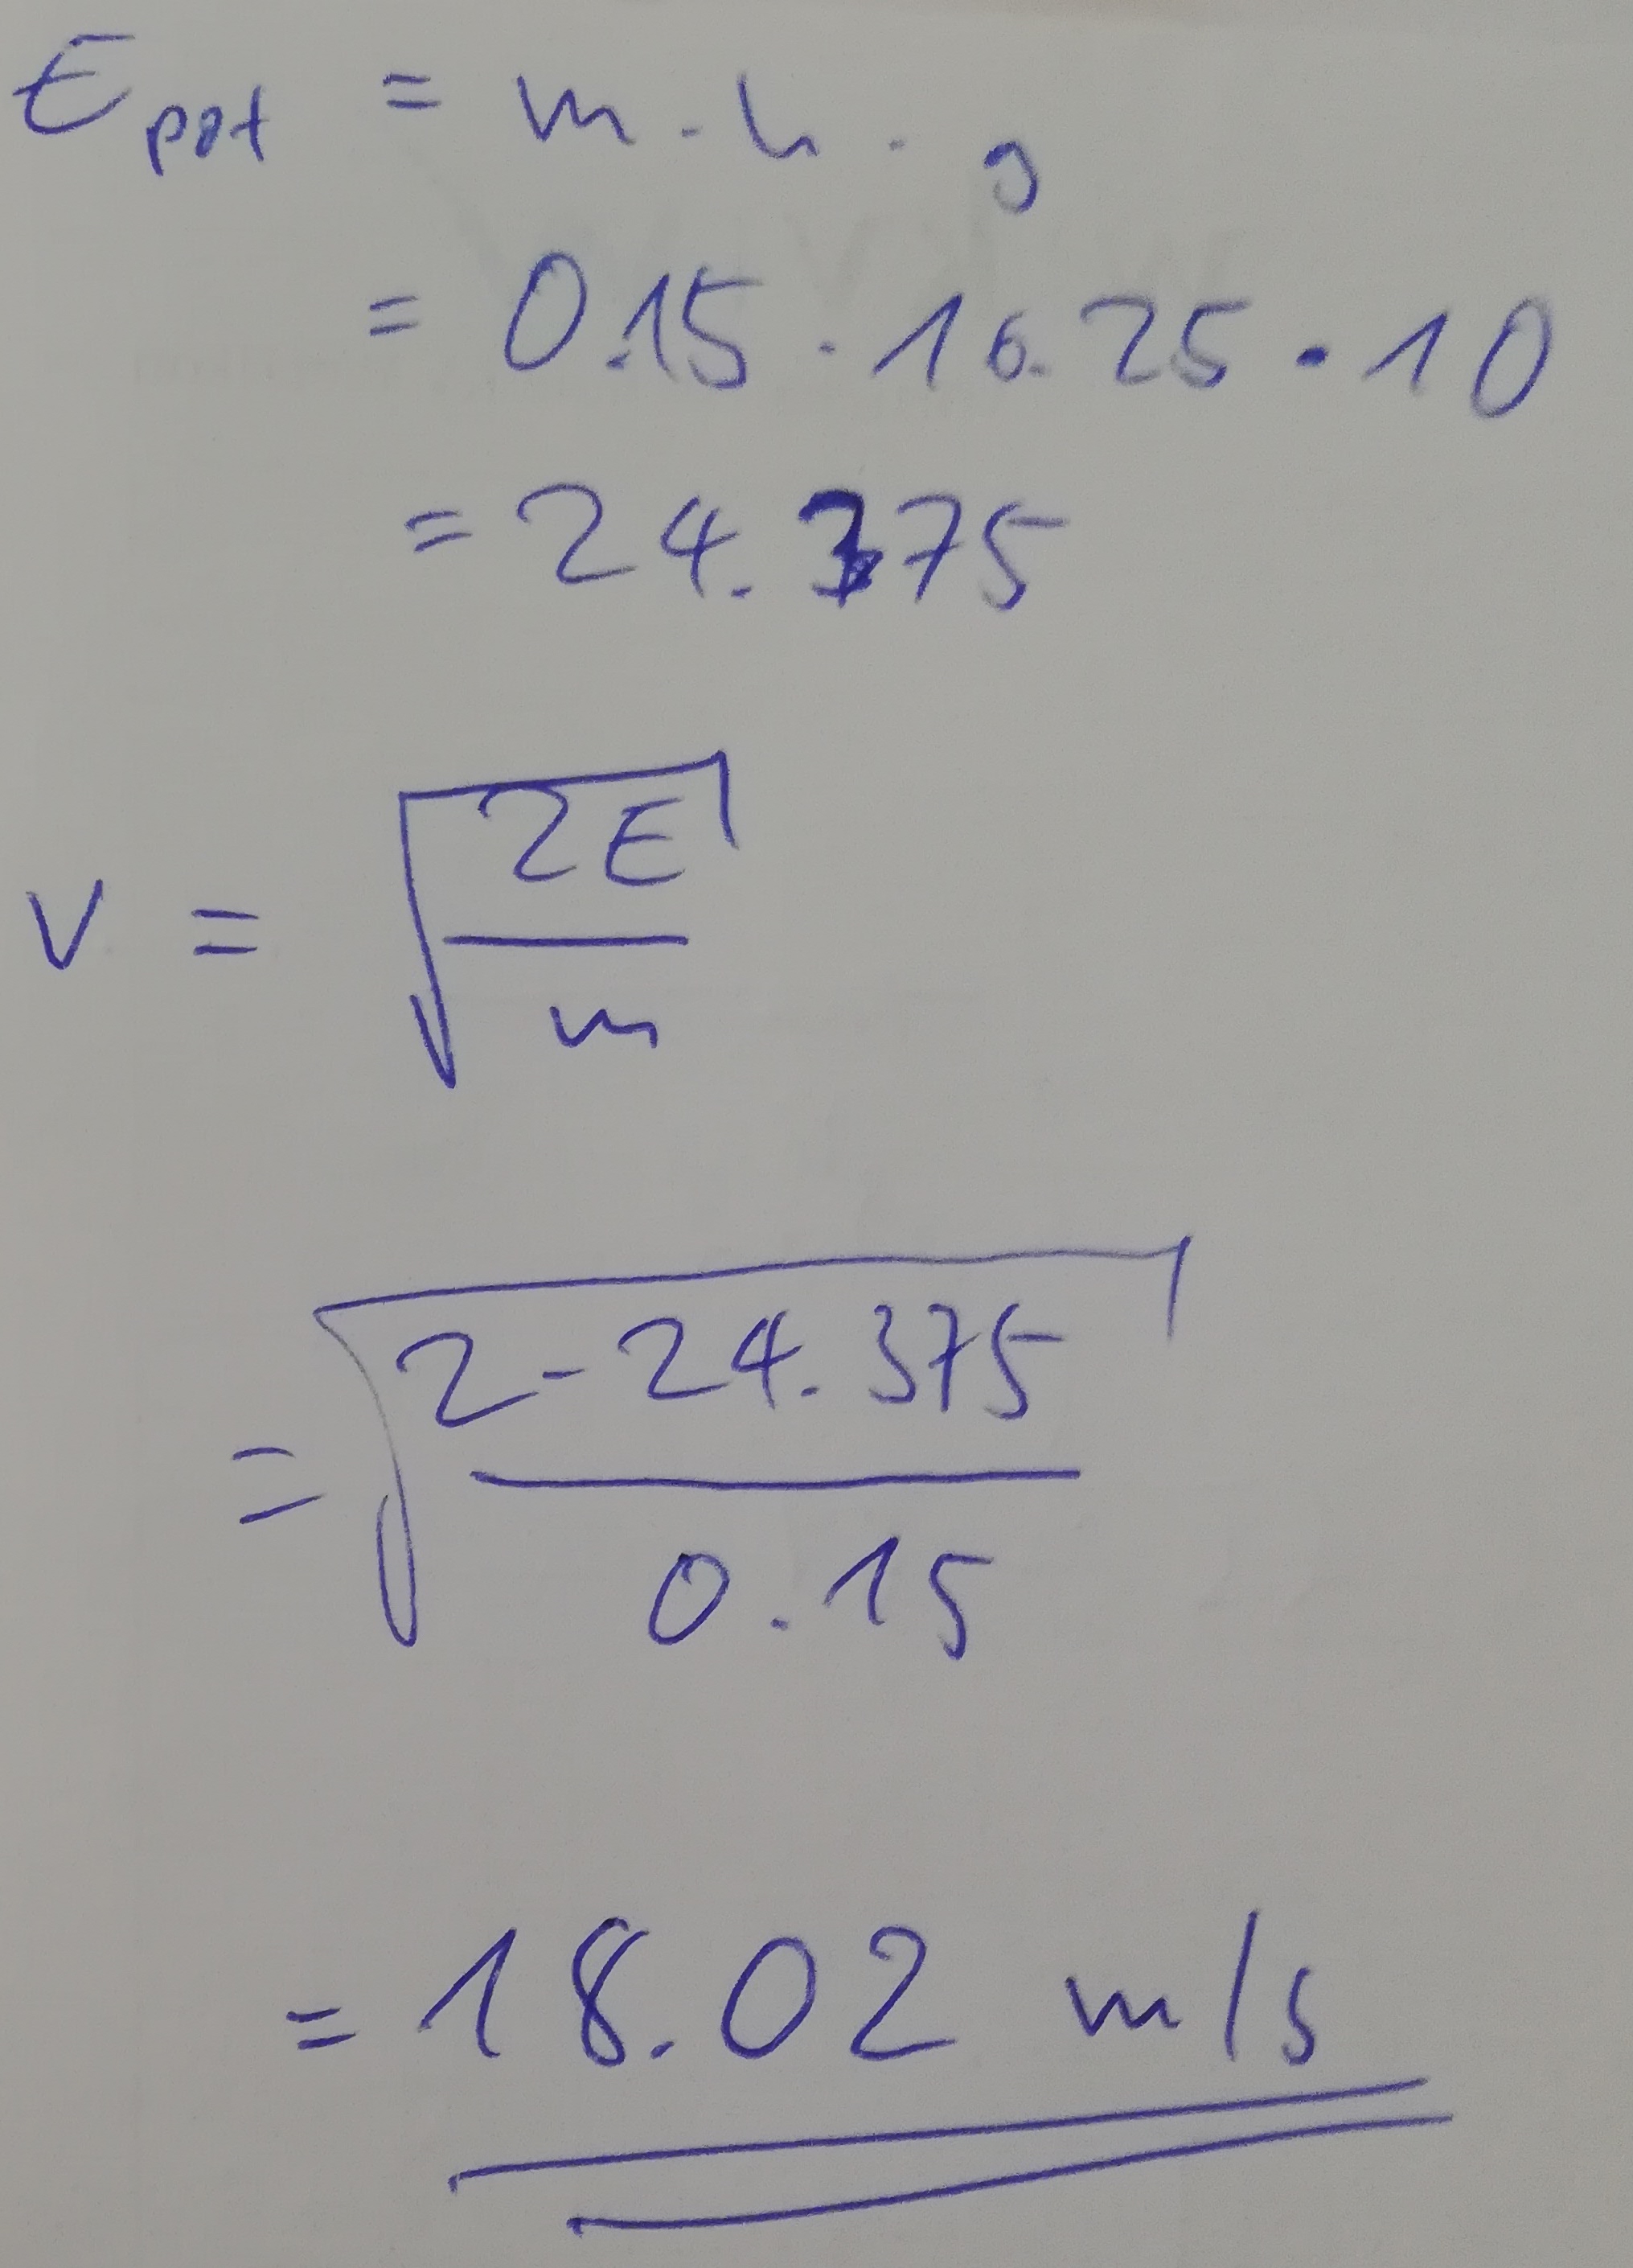 E pot = m · h · g
= 0.15 · 16.25 · 10
= 24.375
v = √(2E / m)
= √(2 · 24.375 / 0.15)
= 18.02 m/s